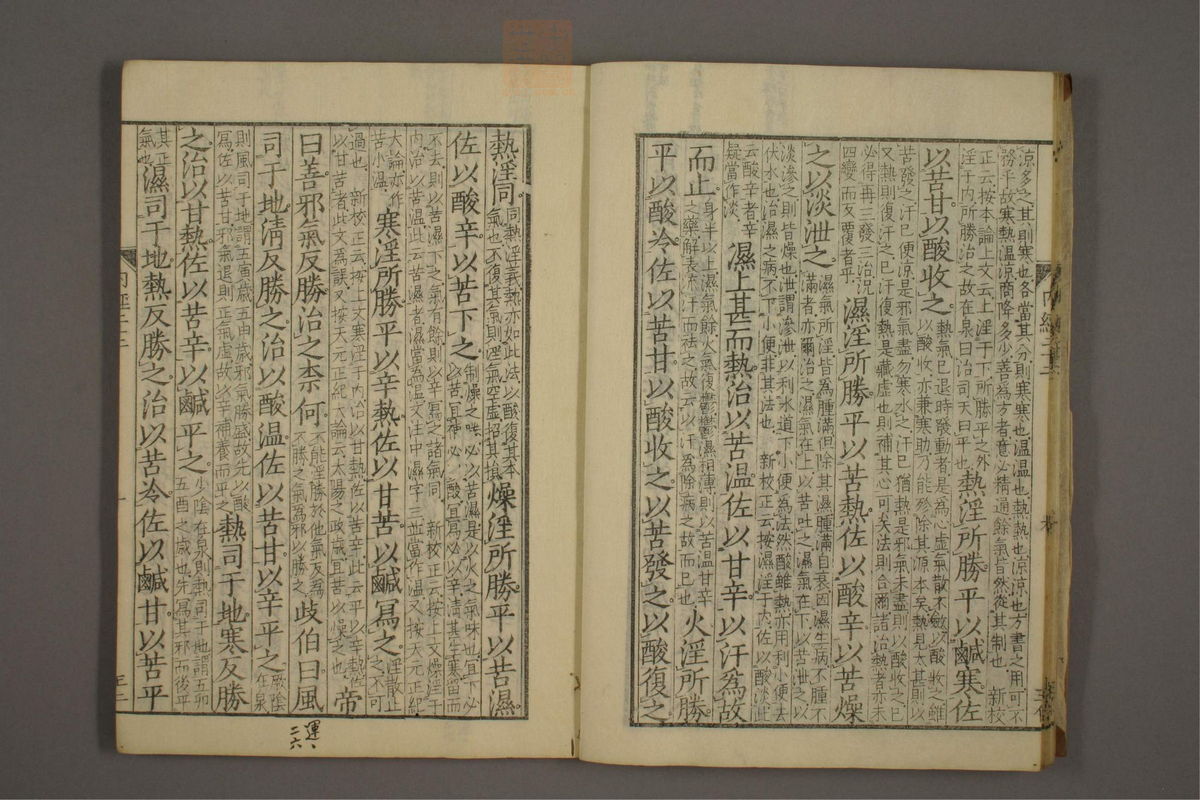 涼多之其則寒也各當其分則寒寒也温温也熱熱也涼涼也方書之用可不
務乎故寒熱温涼商降多少善為方者意必精通餘氣皆然從其制也 新校
正云按本論上文云上淫于下所勝平之外
淫于内所勝治之故在泉曰治司天曰平也 熱淫所勝平以鹹寒佐
以苦甘以酸收之 熱氣已退時發動者是為心虚氣散不斂以酸收之雖
以酸收亦兼寒助乃能殄除其源本矣熱見太甚則以
苦發之汗已便涼是邪氣盡勿寒水之汗已猶熱是邪氣未盡則以酸收之已
又熱則復汗之已汗復熱是藏虚也則補其心可矣法則合爾諸治熱者亦未
必得再三發三治况
四變而反覆者乎 濕淫所勝平以苦熱佐以酸辛以苦燥
之以淡泄之 濕氣所淫皆為腫滿但除其濕腫滿自衰因濕生病不腫不
滿者亦爾治之濕氣在上以苦吐之濕氣在下以苦泄之以
淡滲之則皆燥也泄謂滲泄以利水道下小便為法然酸雖熱亦用利小便去
伏水也治濕之病不下小便非其法也 新校正云按濕淫于内佐以酸淡此
云酸辛者辛
疑當作淡 濕上甚而熱治以苦温佐以甘辛以汗為故
而止 身半以上濕氣餘火氣復鬱鬱濕相薄則以苦温甘辛
之藥解表流汗而袪之故云以汗為除病之故而已也 火淫所勝
平以酸冷佐以苦甘以酸收之以苦發之以酸復之
熱淫同 同熱淫義熱亦如此法以酸復其本
氣也不復其氣則淫氣空虚招其損 燥淫所勝平以苦濕
佐以酸辛以苦下之 制燥之
不去則以苦濕下之氣有餘則以辛寫之諸氣同 新校正云按上文燥淫于
内治以苦温此云苦濕者濕當為温文注中濕字三並當作温又按天元正紀
大論亦作
苦小温 寒淫所勝平以辛熱佐以甘苦以鹹寫之 淫散止
之不可
過也 新校正云按上文寒淫于内治以甘熱佐以苦辛此云平以辛熱佐
以甘苦者此文為誤又按天元正紀大論云太陽之政歲宜苦以燥之也 帝
曰善邪氣反勝治之柰何 不能淫勝於他氣反為
不勝之氣為邪以勝之 歧伯曰風
司于地清反勝之治以酸温佐以苦甘以辛平之 厥陰在泉
則風司于地謂五寅歲五申歲邪氣勝盛故先以酸
寫佐以苦甘邪氣退則正氣虚故以辛補養而平之 熱司于地寒反勝
之治以甘熱佐以苦辛以鹹平之 少陰在泉則熱司于地謂五卯
五酉之歲也先寫其邪而後平
其正
氣也 濕司于地熱反勝之治以苦冷佐以鹹甘以苦平
運
二六